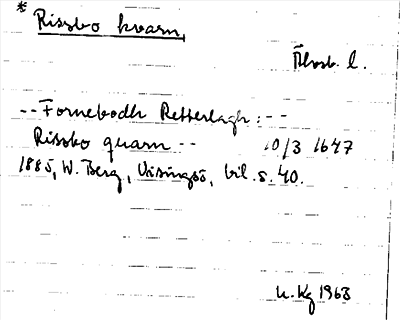 * Rissbo kvarn,
Älvsb. l.
-- Fornebodh Retterlagh: --
Rissbo quarn -- 10/3 1647
1885, W. Berg, Visingsö, bil. s. 40.
U. Kg 1963